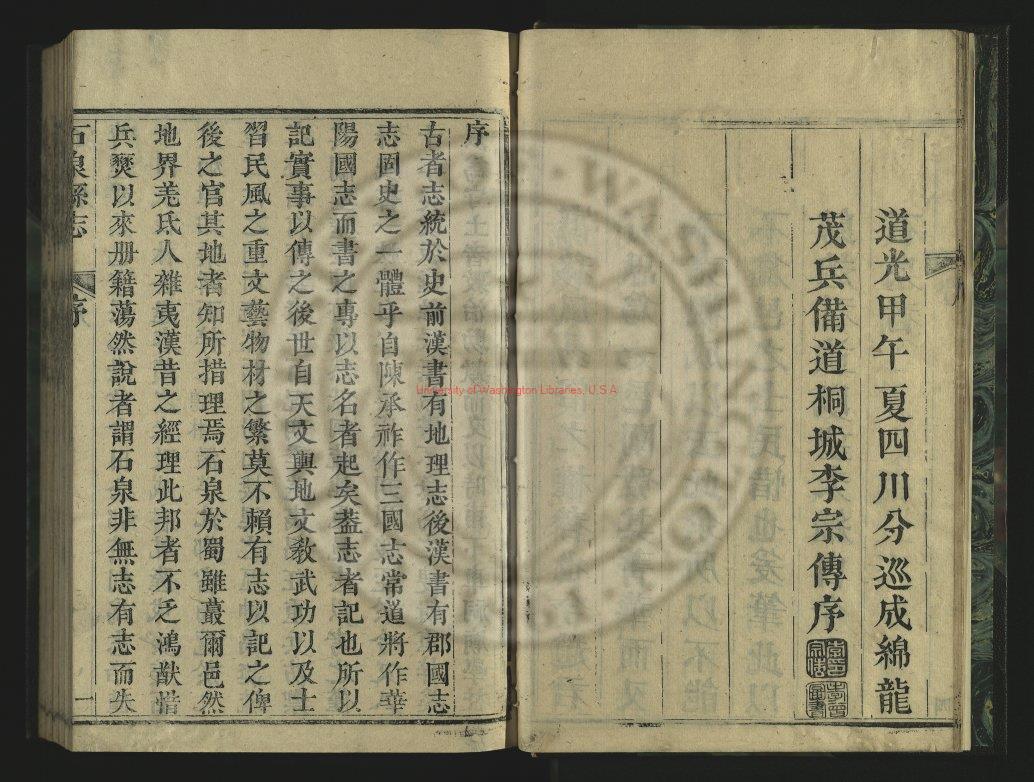 道光甲午夏四川分巡成綿龍
茂兵備道桐城李宗傳序
序
古者志統於史前漢書有地理志後漢書有郡國志
志固史之一體乎自陳承祚作三國志常道將作華
陽國志而書之專以志名者起矣葢志者記也所以
記實事以傳之後世自天文輿地文教武功以及士
習民風之重文藝物材之繁莫不賴有志以記之俾
後之官其地者知所措理焉石泉於蜀雖蕞爾邑然
地界羌氐人雜夷漢昔之經理此邦者不乏鴻猷惜
兵燹以來册籍蕩然說者謂石泉非無志有志而失
石泉縣志
序
一
University of Washington Libraries, U.S.A